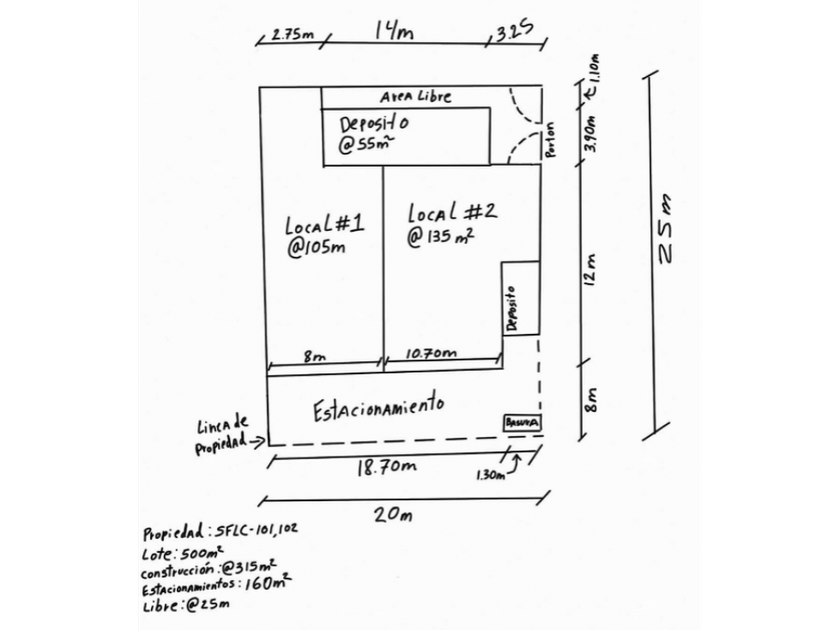 2.75m 14m 3.25
1.10m
Area Libre
Deposito
@55m²
Porton
3.90m
Local #1
@105m
Local #2
@135 m²
25m
12m
Deposito
8m 10.70m
Estacionamiento
8m
Basura
Linea de
Propiedad
18.70m
1.30m
20m
Propiedad: SFLC-101,102
Lote: 500m²
construcción: @315m²
Estacionamientos: 160m²
Libre: @25m